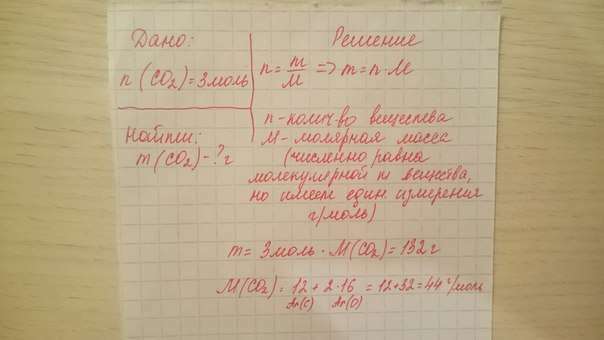 Дано:
n (CO₂) = 3моль
Найти:
m (CO₂) - ? г
Решение
n = m/M => m = n · M
n - колич-во вещества
M - молярная масса
(численно равна
молекулярной m вещества,
но имеет един. измерения
г/моль)
m = 3моль · M(CO₂) = 132 г
M(CO₂) = 12 + 2·16 = 12+32 = 44 г/моль
Ar(C) Ar(O)